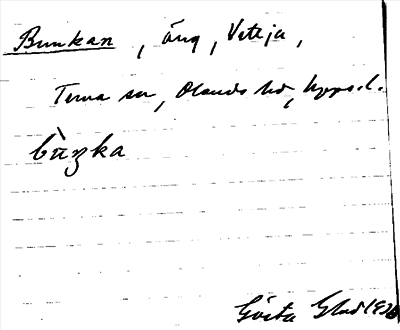 Bunkan, äng, Vettja,
Tuna sn, Olands hd, Upps. l.
bùŋka
Gösta Glad 1936